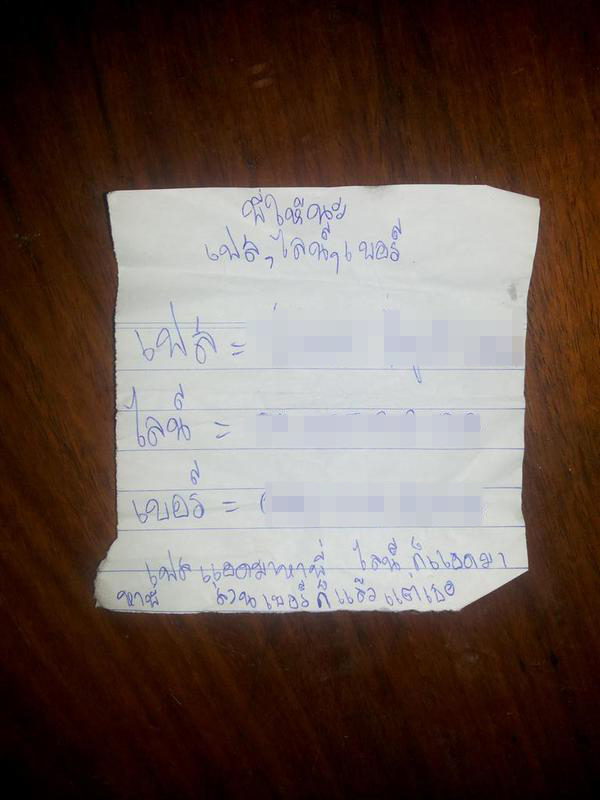 พี่ให้นะ
เฟส,ไลน์,เบอร์
เฟส =
ไลน์ =
เบอร์ =
เฟสแอดมาหาพี่ ไลน์ก็แอดมา
หาพี่ ส่วนเบอร์ก็แล้วแต่เธอ